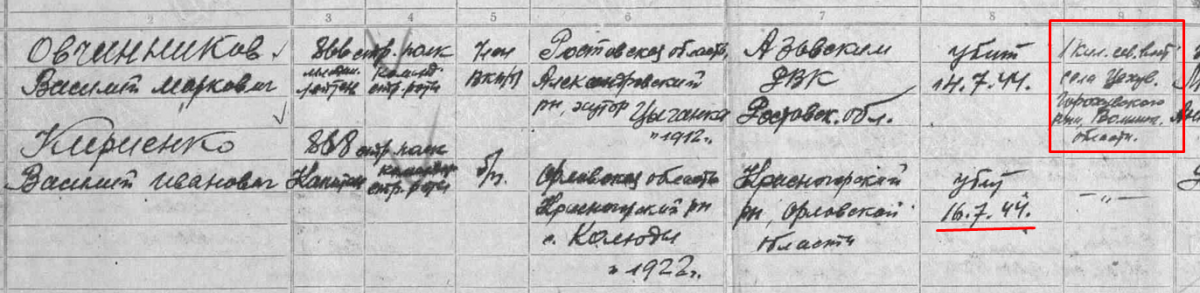 2 3 4 5 6 7 8 9
Овчинников
Василий Маркович
868 стр. полк
стр. роты
член
ВКП/б
Ростовская область,
Александровский
рн, хутор Цыганка
"1912г.
Азовским
РВК
Ростовск. обл.
убит
14.7.44.
1 кил. сев. вост.
села Цехув.
Гороховского
рна, Волынс.
области.
Кириенко
Василий Иванович
868 стр. полк
Капитан
командир
стр. роты
б/п.
Орловская область
Красногорский рн
с. Колюды
" 1922г.
Красногорский
рн, Орловской
области
убит
16.7.44.
-"-